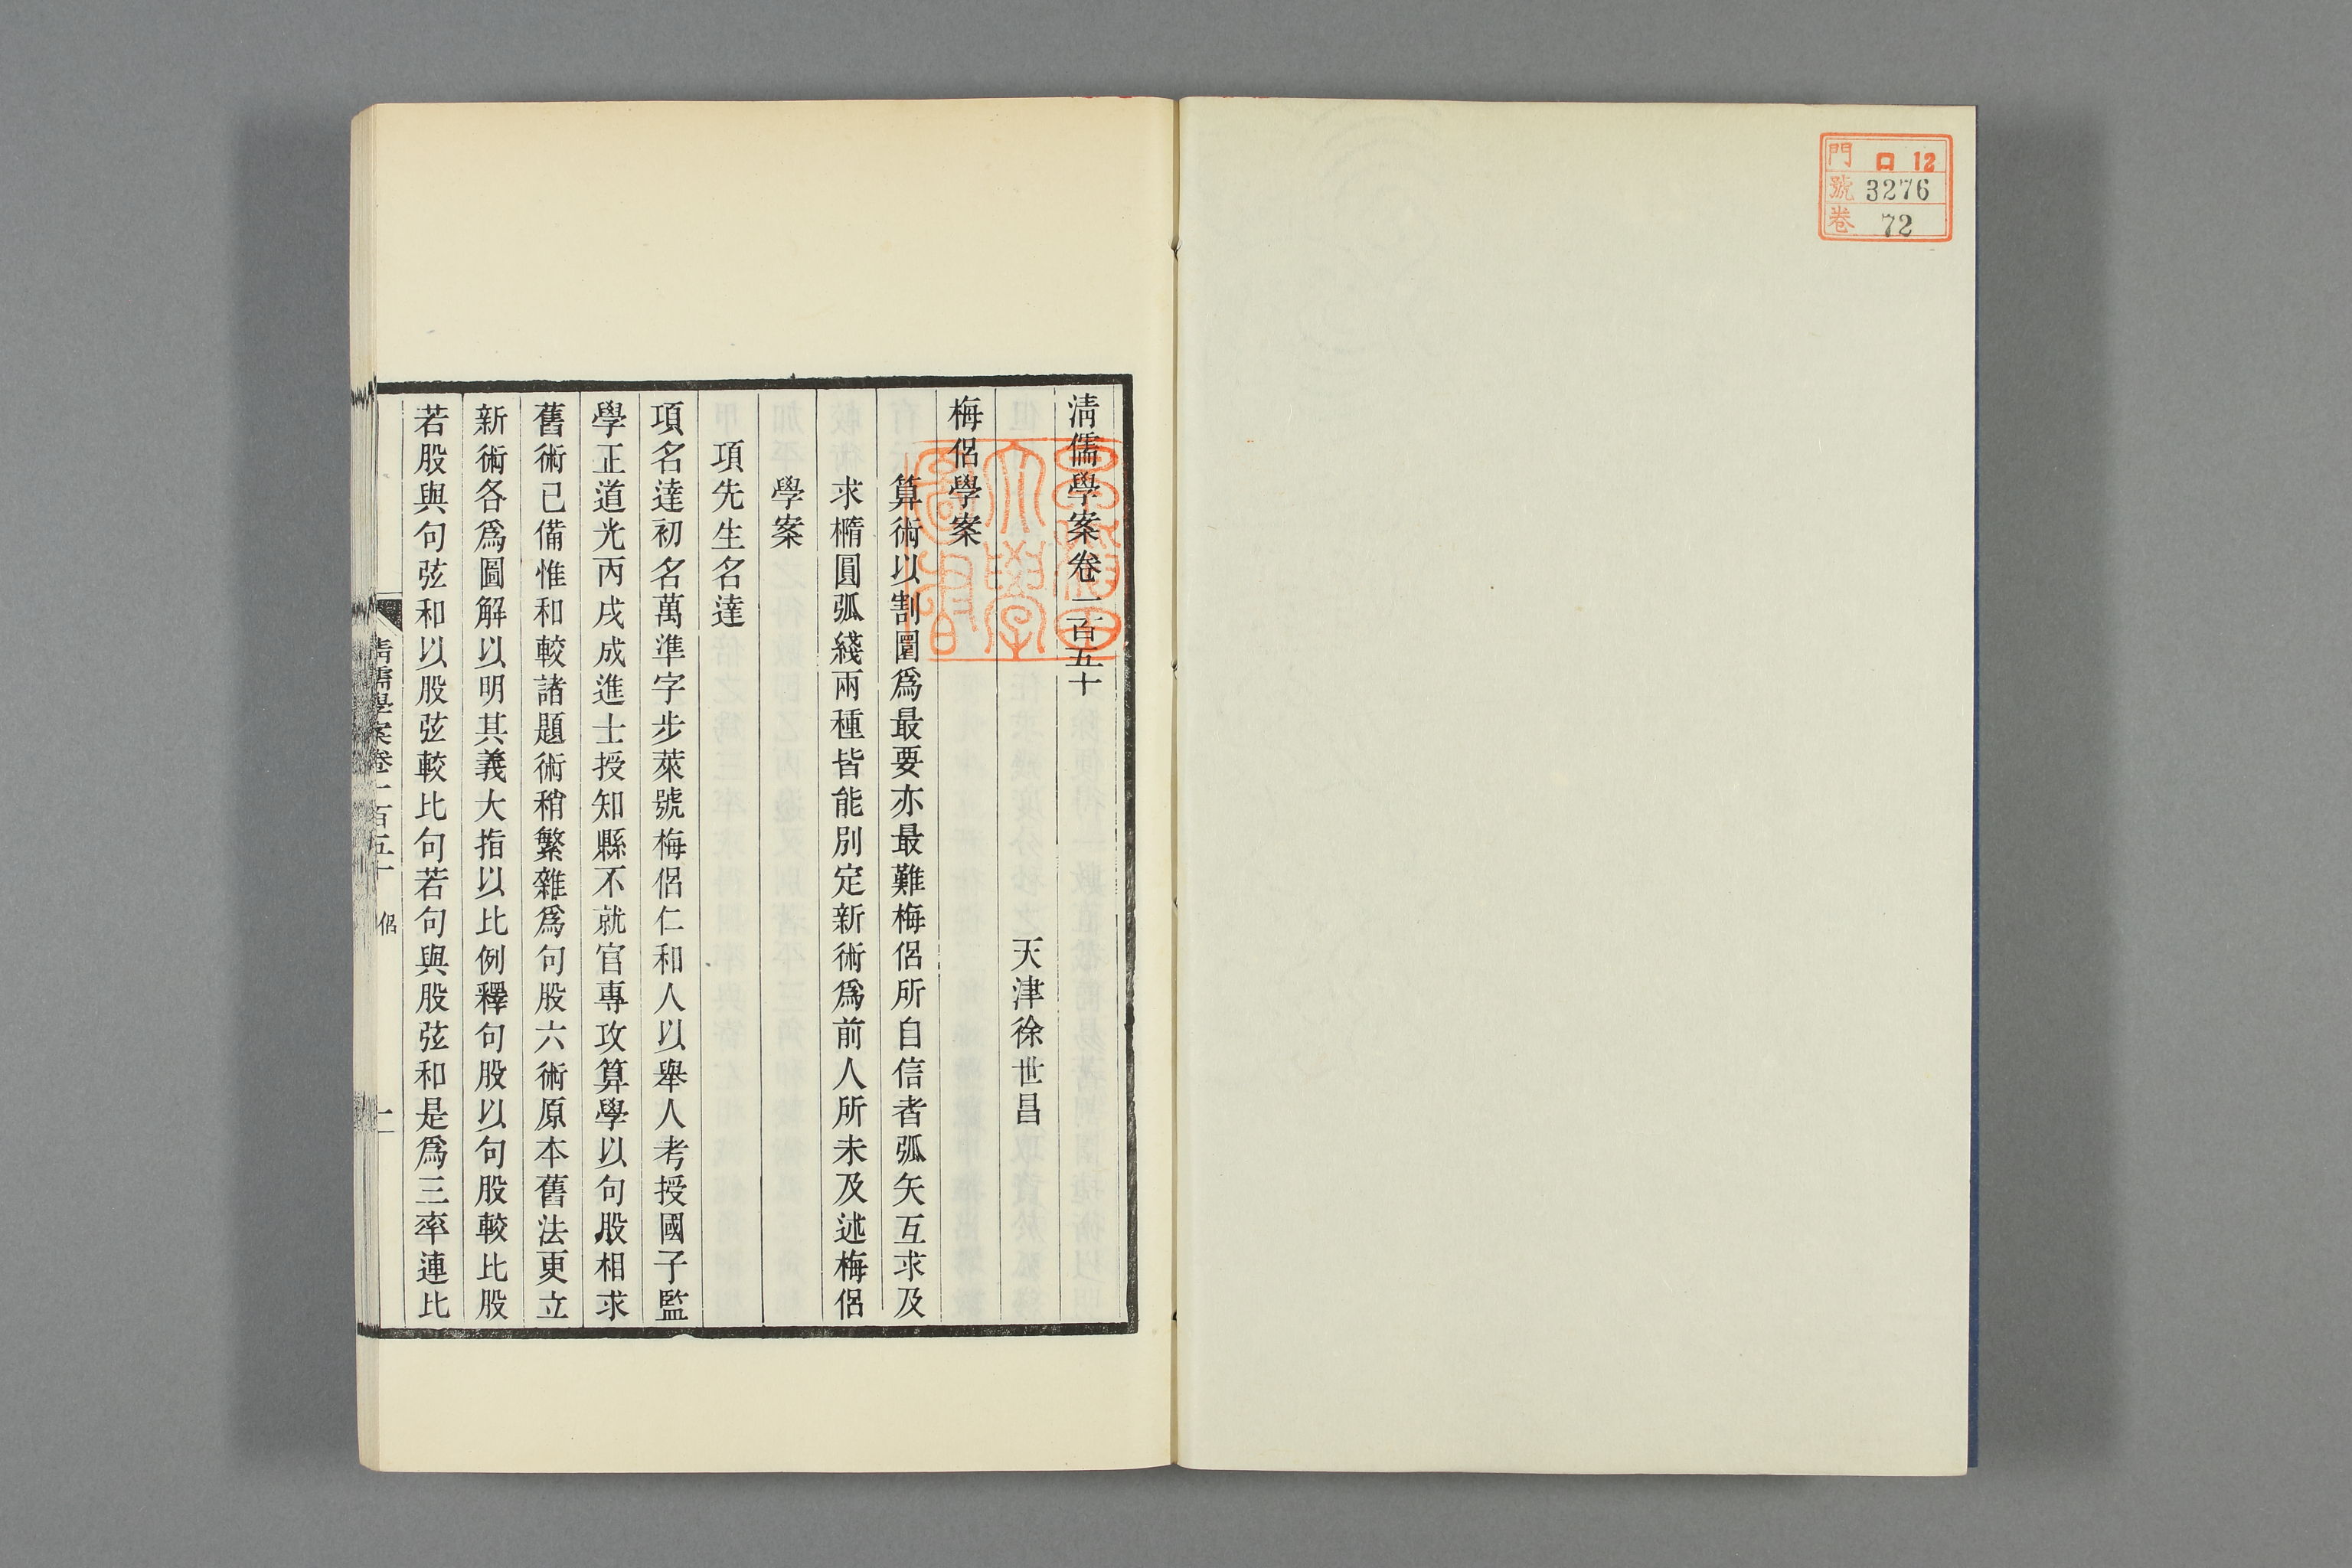 門 口 12
號 3276
卷 72
清儒學案卷一百五十
天津徐世昌
梅侶學案
算術以割圜爲最要亦最難梅侶所自信者弧矢互求及
求橢圓弧綫兩種皆能別定新術爲前人所未及述梅侶
學案
項先生名達
項名達初名萬準字步萊號梅侶仁和人以舉人考授國子監
學正道光丙戌成進士授知縣不就官專攻算學以句股相求
舊術已備惟和較諸題術稍繁雜爲句股六術原本舊法更立
新術各爲圖解以明其義大指以比例釋句股以句股較比股
若股與句弦和以股弦較比句若句與股弦和是爲三率連比
清儒學案卷一百五十 侶 一